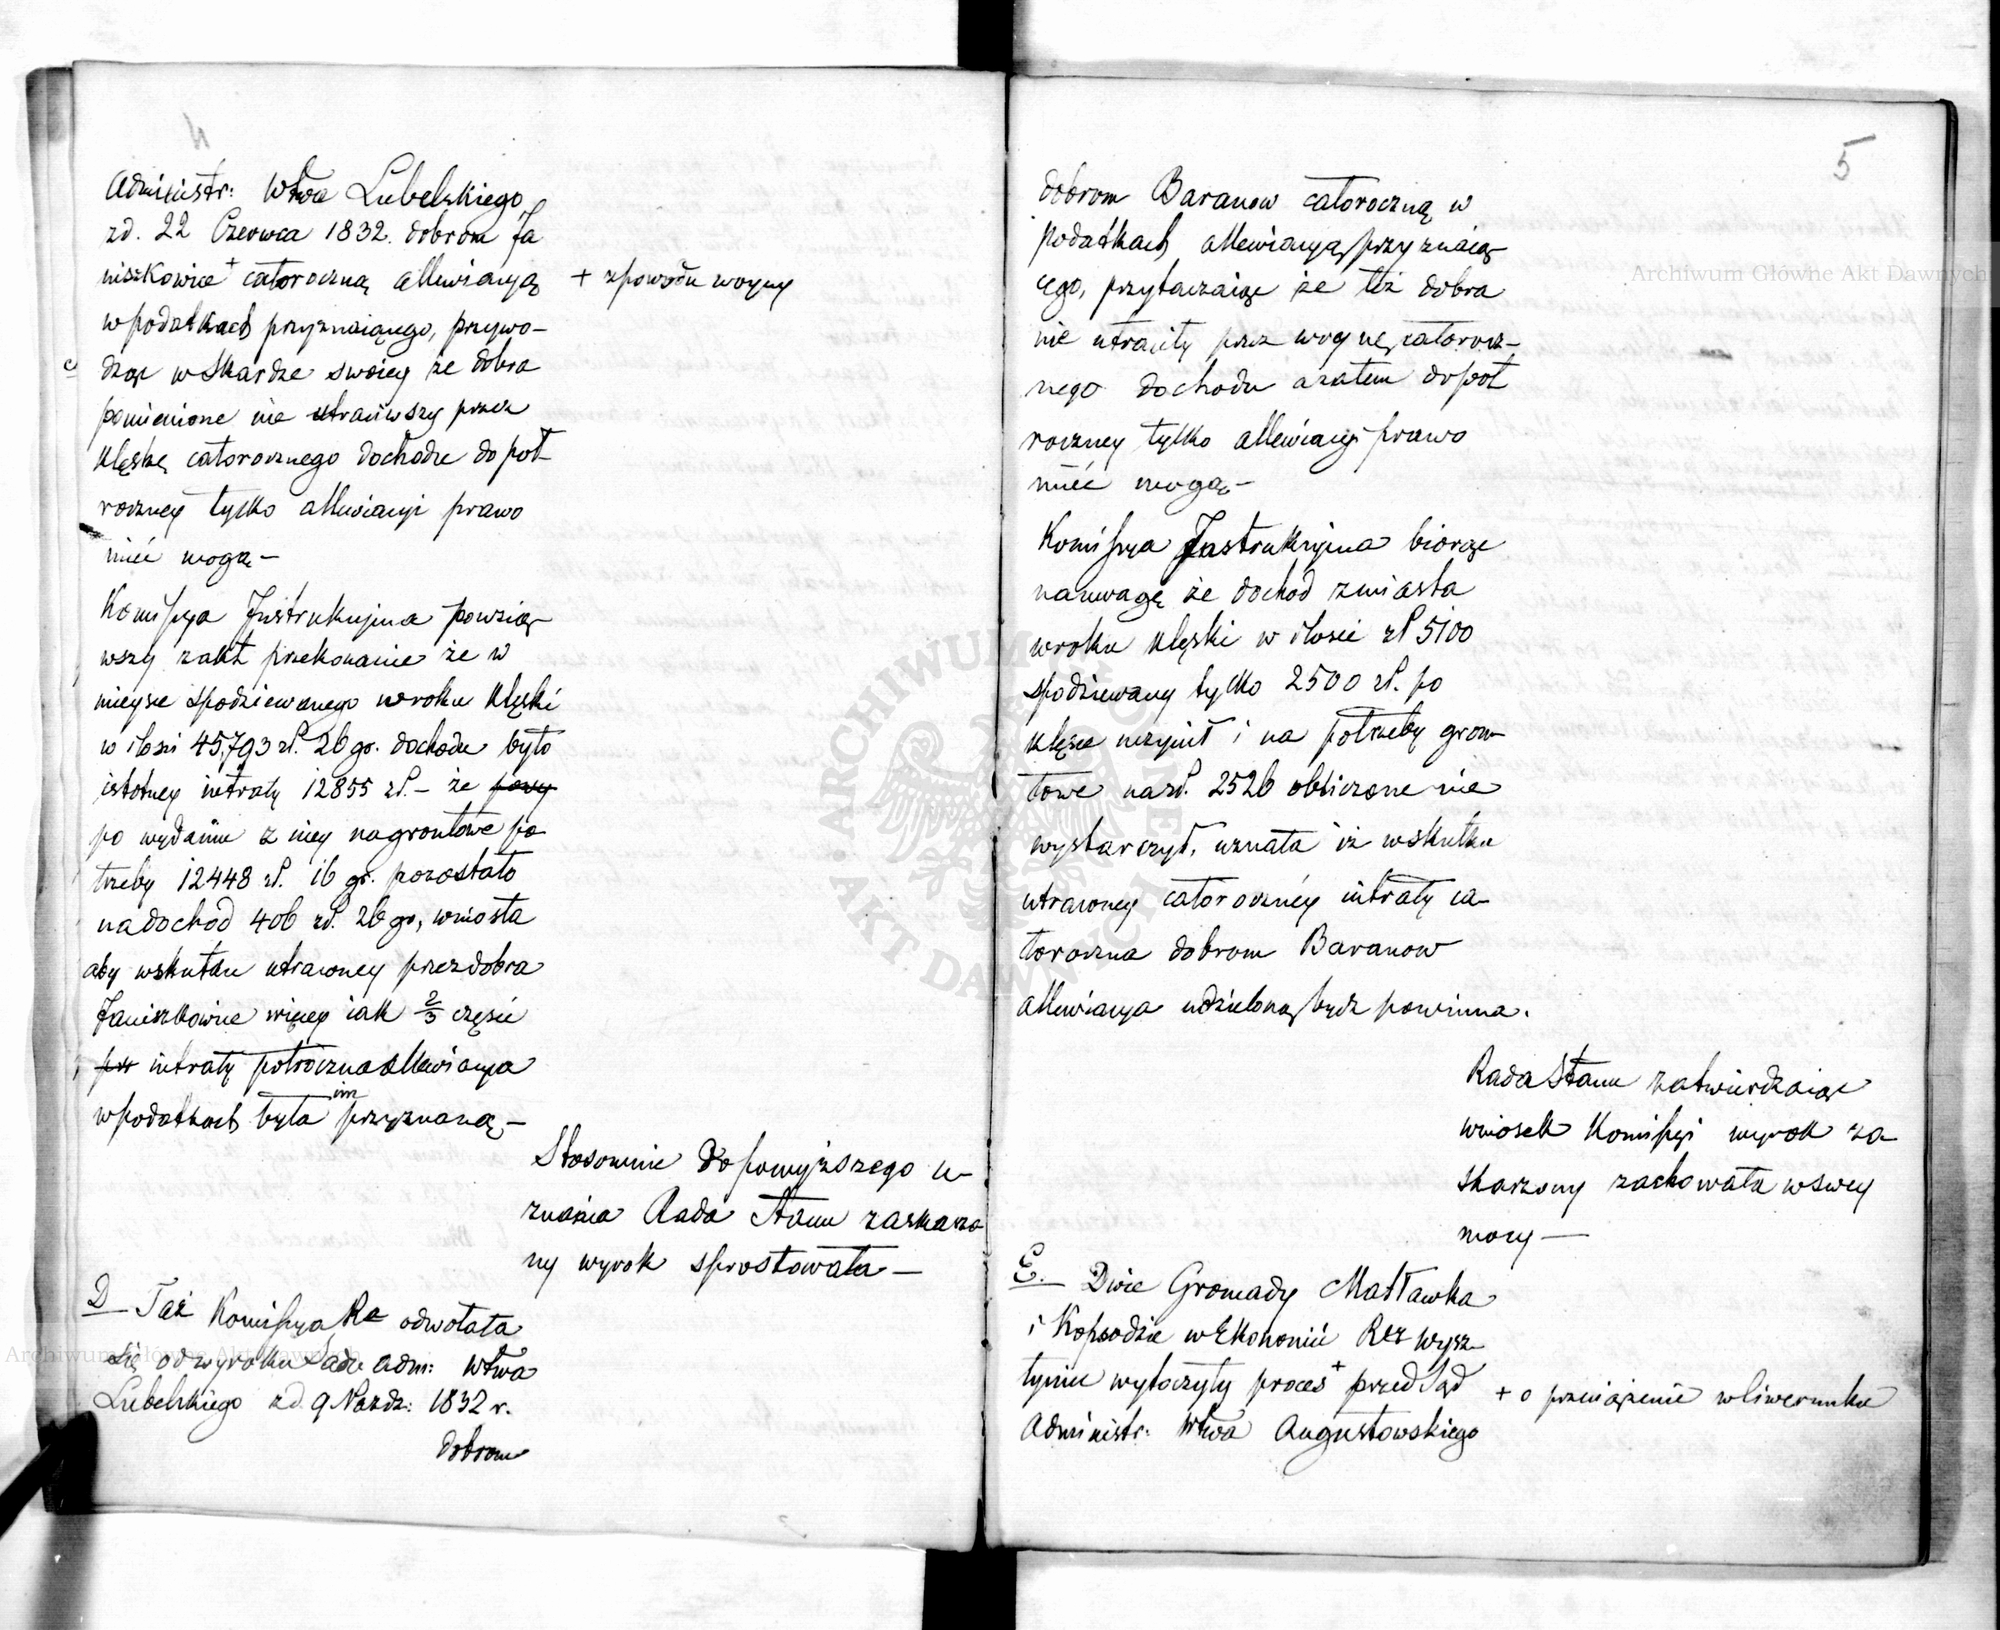 4
Administr: Wtwa Lubelskiego
zd. 22 Czerwca 1832. dobrom Ja
niszkowice + całoroczną allewiacyą
+ z powodu woyny
w podatkach przyznaiącego, przywo-
dząc w skardze swoiey że dobra
pomienione nie utraciwszy przez
klęskę całorocznego dochodu do pół
roczney tylko allewiacyi prawo
mieć mogą –
Komissya Instrukcyjna powziąw
wszy z akt przekonanie że w
mieysce spodziewanego w roku klęski
w ilości 45,793 zł. 26 gr. dochodu było
istotney intraty 12855 zł. – że powy
po wydaniu z niey na grontowe po
trzeby 12448 zł. 16 gr. pozostało
na dochód 406 zł. 26 gr., wniosła
aby w skutku utraconey przez dobra
Janiszkowice więcey iak 2/3 części
prz intraty półroczna allewiacya
w podatkach była im przyznaną –
Stosownie do powyższego u-
znania Rada Stanu zaskarżo
ny wyrok sprostowała –
D – Taż Komissya Rz odwołała
się od wyroku Sądu Adm: Wtwa
Lubelskiego z d. 9 Paźdz: 1832 r.
dobrom
5
dobrom Baranow całoroczną w
podatkach allewiacyą przyznaią
cego, przytaczaiąc że też dobra
nie utraciły przez woynę całorocz-
nego dochodu a zatem do pół
roczney tylko allewiacyi prawo
mieć mogą –
Komissya Instrukcyjna biorąc
na uwagę że dochód z miasta
w roku klęski w ilości zł 5100
spodziewany tylko 2500 zł. po
klęsce uczynił i na potrzeby gron-
towe na zł. 2526 obliczone nie
wystarczył, uznała iż w skutku
utraconey całoroczney intraty ca-
łoroczna dobrom Baranow
allewiacya udzieloną bydź powinna.
Rada Stanu zatwierdzaiąc
wniosek Komissyi wyrok za
skarżony zachowała w swey
mocy –
E. – Dwie Gromady Matławka
i Kopsodzie w Ekonomii Rz Wysz-
tyniec wytoczyły proces + przed Sąd
+ o przeciążenie w liwerunku
Administr: Wtwa Augustowskiego
Archiwum Główne Akt Dawnych
Archiwum Główne Akt Dawnych
ARCHIWUM GŁÓWNE AKT DAWNYCH